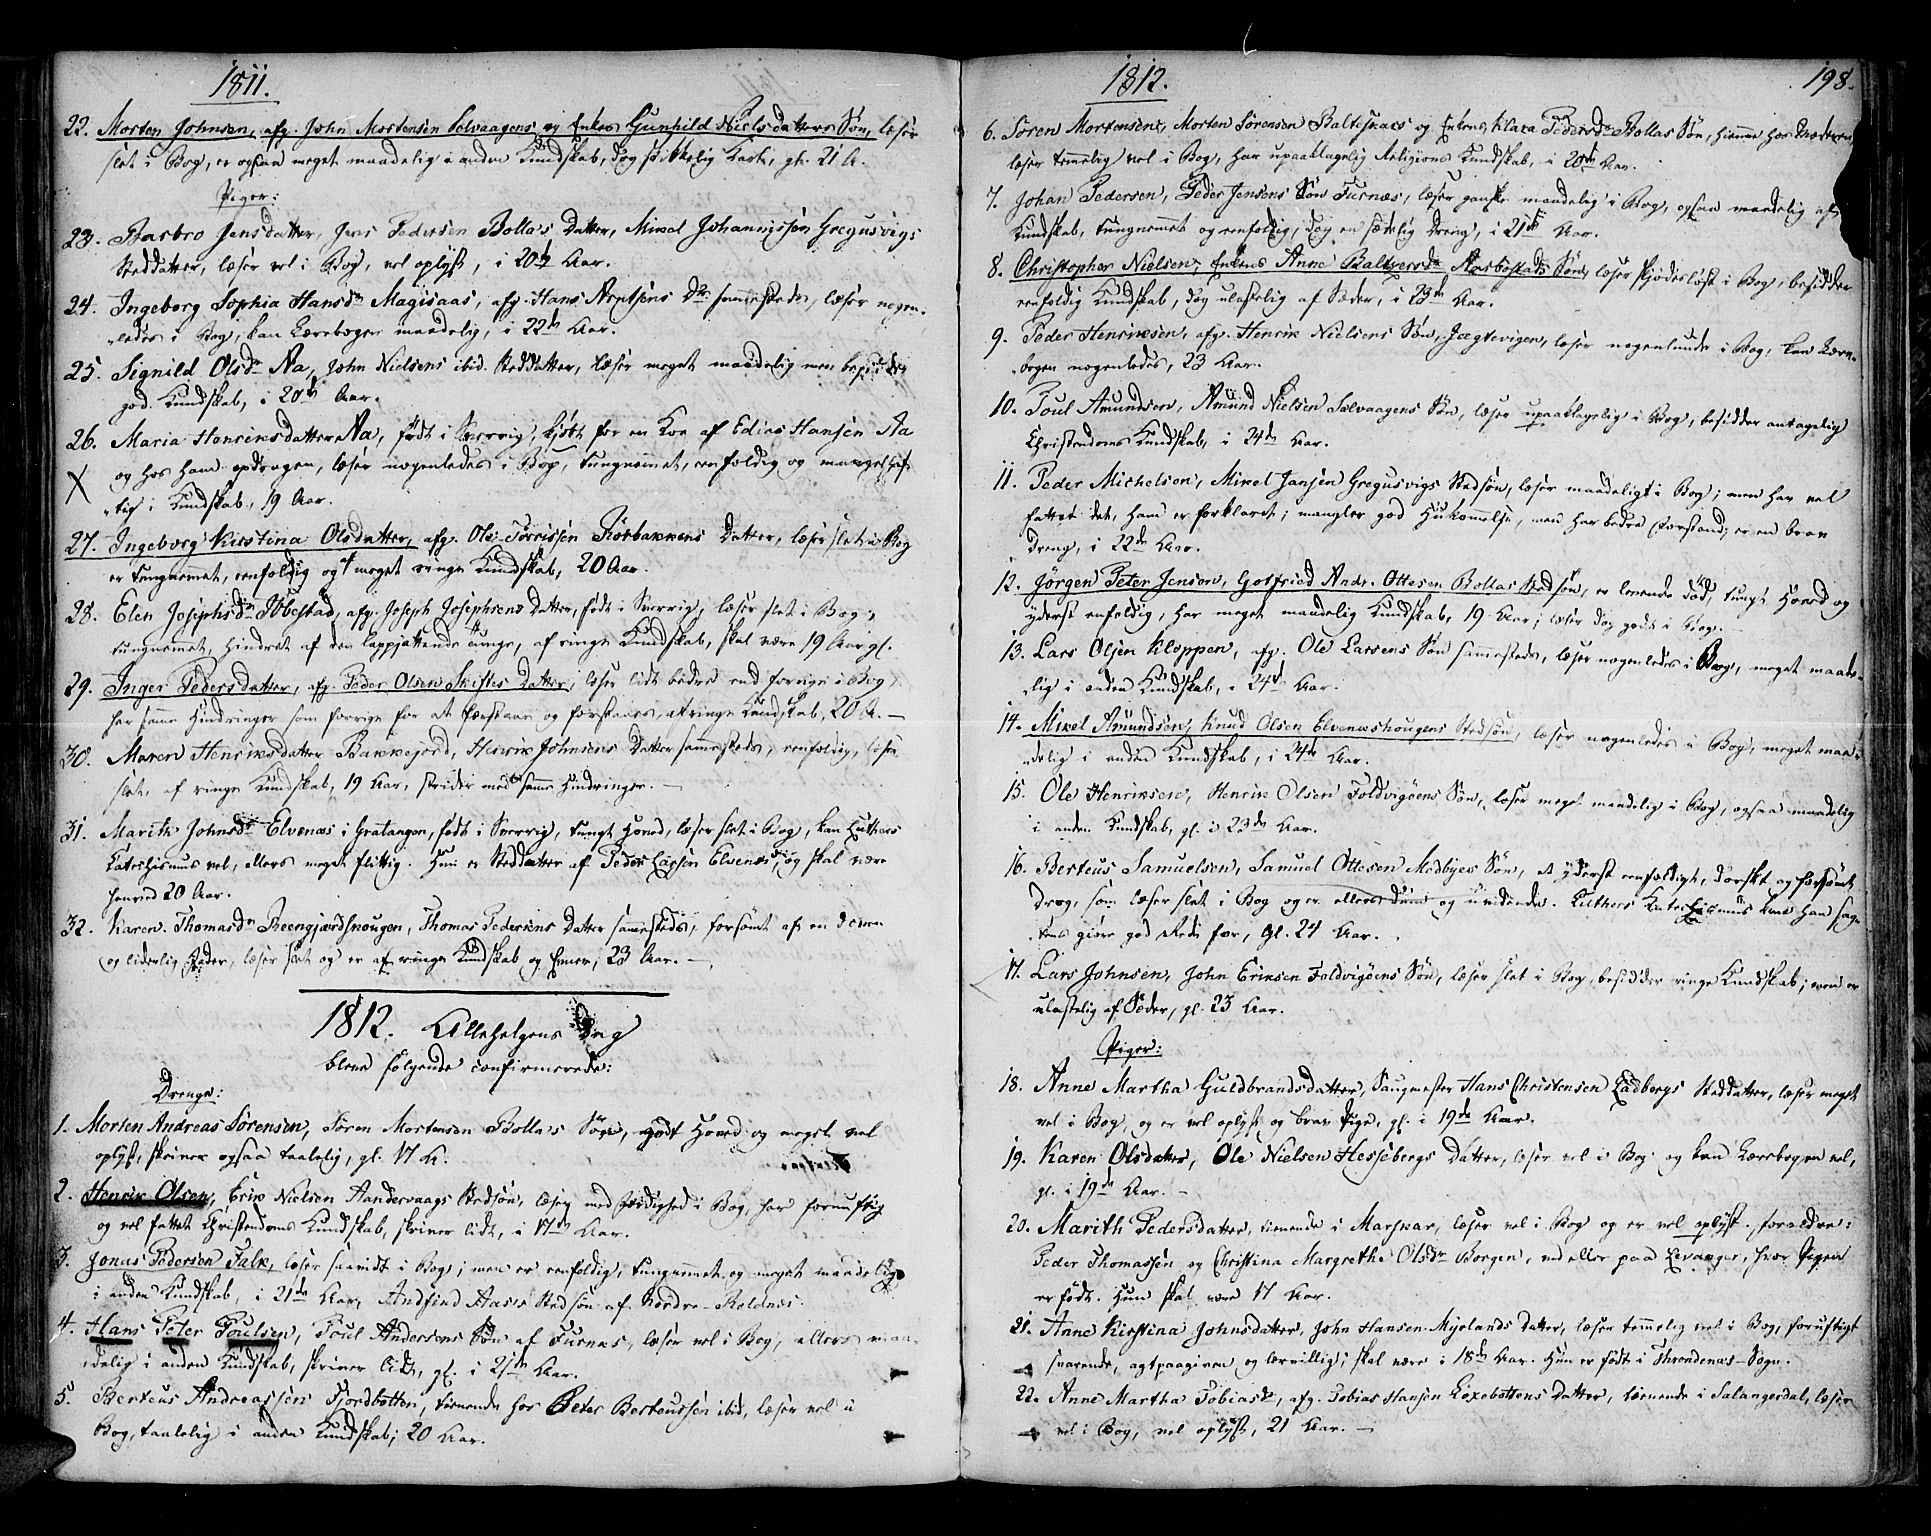 1811.
22. Morten Johnsen, afg. John Mortensen Solvaagens og Enkes Gunhild Nielsdatters Søn, læser
slet i Bog, er ogsaa meget maadelig i anden Kundskab, dog skikkelig Karl, gl. 21 A.
Piger:
23. Barbro Jensdatter, Jens Pedersen Bolla's Datter, Mikel Johannissen Gregusvigs
Steddatter, læser vel i Bog, vel oplyst, i 20de Aar.
24. Ingeborg Sophia Hansdr Magisaas, afg. Hans Arntsens Dr. sammesteds, læser nogen-
ledes i Bog, kan Lærebogen maadelig, i 22de Aar.
25. Signild Olsdr Aa, John Nielsens ibid. Steddatter, læser meget maadelig men besidder
god Kundskab, i 20de Aar.
26. Maria Henriksdatter Aa, født i Sverrig, kjøbt for en Koe af Edias Hansen Aa
og hos ham opdragen, læser nogenledes i Bog, tungnemmet, eenfoldig og mangelhaf-
X tig i Kundskab, 19 Aar.
27. Ingeborg Kirstina Olsdatter, afg. Ole Torrissen Rørbakkens Datter, læser slet i Bog
er tungnemmet, eenfoldig og af meget ringe Kundskab, 20 Aar.
28. Elen Josephsdr Ibbestad, afg. Joseph Josephsens Datter, født i Sverrig, læser slet i Bog,
tungnemmet, hindret af den lappiske tunge, af ringe Kundskab, skal være 19 Aar gl.
29. Inger Pedersdatter, afg. Peder Olsen Skiftes Datter, læser lidt bedre end forrige i Bog,
har samme Hindringer som forrige for at forstaae og forstaaes, af ringe Kundskab, 20 A.
30. Maren Henriksdatter Bakkejord, Henrik Johnsens Datter sammesteds, eenfoldig, læser
slet, af ringe Kundskab, 19 Aar, strider med samme Hindringer.
31. Marith Johnsdr Elvenæs i Gratangen, født i Sverrig, tungt Hoved, læser slet i Bog, kan Luthers
Katechismus vel, ellers meget flittig. Hun er Steddatter af Peder Larsen Elvenæs, og skal være
henved 20 Aar.
32. Karen Thomasdr Reengjærdshougen, Thomas Pedersens Datter sammesteds, forsømt af en doven
og liderlig Fader, læser slet og er af ringe Kundskab og Evner, 23 Aar.
1812. Allehelgens Dag
bleve følgende confirmerede:
Drenge:
1. Morten Andreas Sørensen, Søren Mortensen Bolla's Søn, godt Hoved og meget vel
oplyst, skriver ogsaa taalelig, gl. 17 A.
2. Henrik Olsen, Erik Nielsen Aandervaags Stedsøn, læser med Færdighed i Bog, har fornuftig
og vel fattet Christendoms Kundskab, skriver lidt, i 17de Aar.
3. Jonas Pedersen Falk, læser saavidt i Bog; men er eenfoldig, tungnemmet og meget maadelig
i anden Kundskab, i 21de Aar, Andfind Aas's Stedsøn af Nordre-Roldnæs.
4. Hans Peter Poulsen, Poul Andersens Søn af Furnæs, læser vel i Bog, ellers maa-
delig i anden Kundskab, skriver lidt, gl. i 21de Aar.
5. Berteus Andreassen Fjordbotten, tienende hos Peter Berteussen ibid, læser vel i
Bog, taalelig i anden Kundskab, 20 Aar.
1812.
198.
6. Søren Mortensen, Morten Sørensen Baltskars og Enkens Klara Pedersdr Bollas Søn, hiemme hos Moderen,
læser temmelig vel i Bog, har upaaklagelig Religions Kundskab, i 20de Aar.
7. Johan Pedersen, Peder Jensens Søn Furnæs, læser ganske maadelig i Bog, ogsaa maadelig af
Kundskab, tungnemmet og eenfoldig, dog en sædelig Dreng, i 21de Aar.
8. Christopher Nielsen, Enkens Anne Baltzersdr Aarbostads Søn, læser skjødesløst i Bog, besidder
eenfoldig Kundskab, dog ulastelig af Sæder, i 23de Aar.
9. Peder Henriksen, afg. Henrik Nielsens Søn, Jægtevigen, læser nogenlunde i Bog, kan Lære-
bogen nogenledes, 23 Aar.
10. Poul Amundsen, Amund Nielsen Solvaagens Søn, læser upaaklagelig i Bog, besidder antagelig
Christendoms Kundskab, i 24de Aar.
11. Peder Michelsen, Mikel Jansen Gregusvigs Stedsøn, læser maadeligt i Bog; men har vel
fattet det, ham er forklaret; mangler god Hukommelse, men har bedre Forstand; er en brav
Dreng, i 22de Aar.
12. Jørgen Peter Jenson, Gotfried Andr. Ottesen Bollas Stedsøn, er levende død, tungt Hoved og
yderst eenfoldig, har meget maadelig Kundskab, 19 Aar; læser dog godt i Bog.
13. Lars Olsen Kloppen, afg. Ole Larsens Søn sammesteds, læser nogenledes i Bog, meget maade-
lig i anden Kundskab, i 24de Aar.
14. Mikel Amundsen, Knud Olsen Elveneshougens Stedsøn, læser nogenledes i Bog, meget maa-
delig i anden Kundskab, i 24de Aar.
15. Ole Henriksen, Henrik Olsen Foldvigøens Søn, læser meget maadelig i Bog, ogsaa maadelig
i anden Kundskab, gl. i 23de Aar.
16. Berteus Samuelsen, Samuel Ottesen Medbyes Søn, et yderst eenfoldigt, dorskt og forsømt
Drog, som læser slet i Bog og er ellers dum og uvidende. Luthers Katechismus kan han sag-
tens giøre god Rede for, gl. 24 Aar.
17. Lars Johnsen, John Eriksen Foldvigøens Søn, læser slet i Bog, besidder ringe Kundskab; men er
ulastelig af Sæder, gl. 23 Aar.
Piger:
18. Anne Martha Guldbrandsdatter, Saugmester Hans Christensen Ladbergs Steddatter, læser meget
vel i Bog, og er vel oplyst og brav Pige, gl. i 19de Aar.
19. Karen Olsdatter, Ole Nielsen Hessebergs Datter, læser vel i Bog og kan Lærebogen vel,
gl. i 19de Aar.
20. Marith Pedersdatter, tienende i Marskar, læser vel i Bog og er vel oplyst, forældre:
Peder Thomassen og Christina Margrethe Olsdr Borgen, ved eller paa Levanger, hvor Pigen
er født. Hun skal være 17 Aar.
21. Anne Kirstina Johnsdatter, John Hansen Mjølands Datter, læser temmelig vel i Bog, fornuftigt
svarende, agtpaagiven og lærvillig; skal være i 18de Aar. Hun er født i Throndenæs-Sogn.
22. Anne Martha Tobiasdr, afg. Tobias Hansen Lexebottens Datter, tienende i Salangerdal, læser
vel i Bog, vel oplyst, 21 Aar.